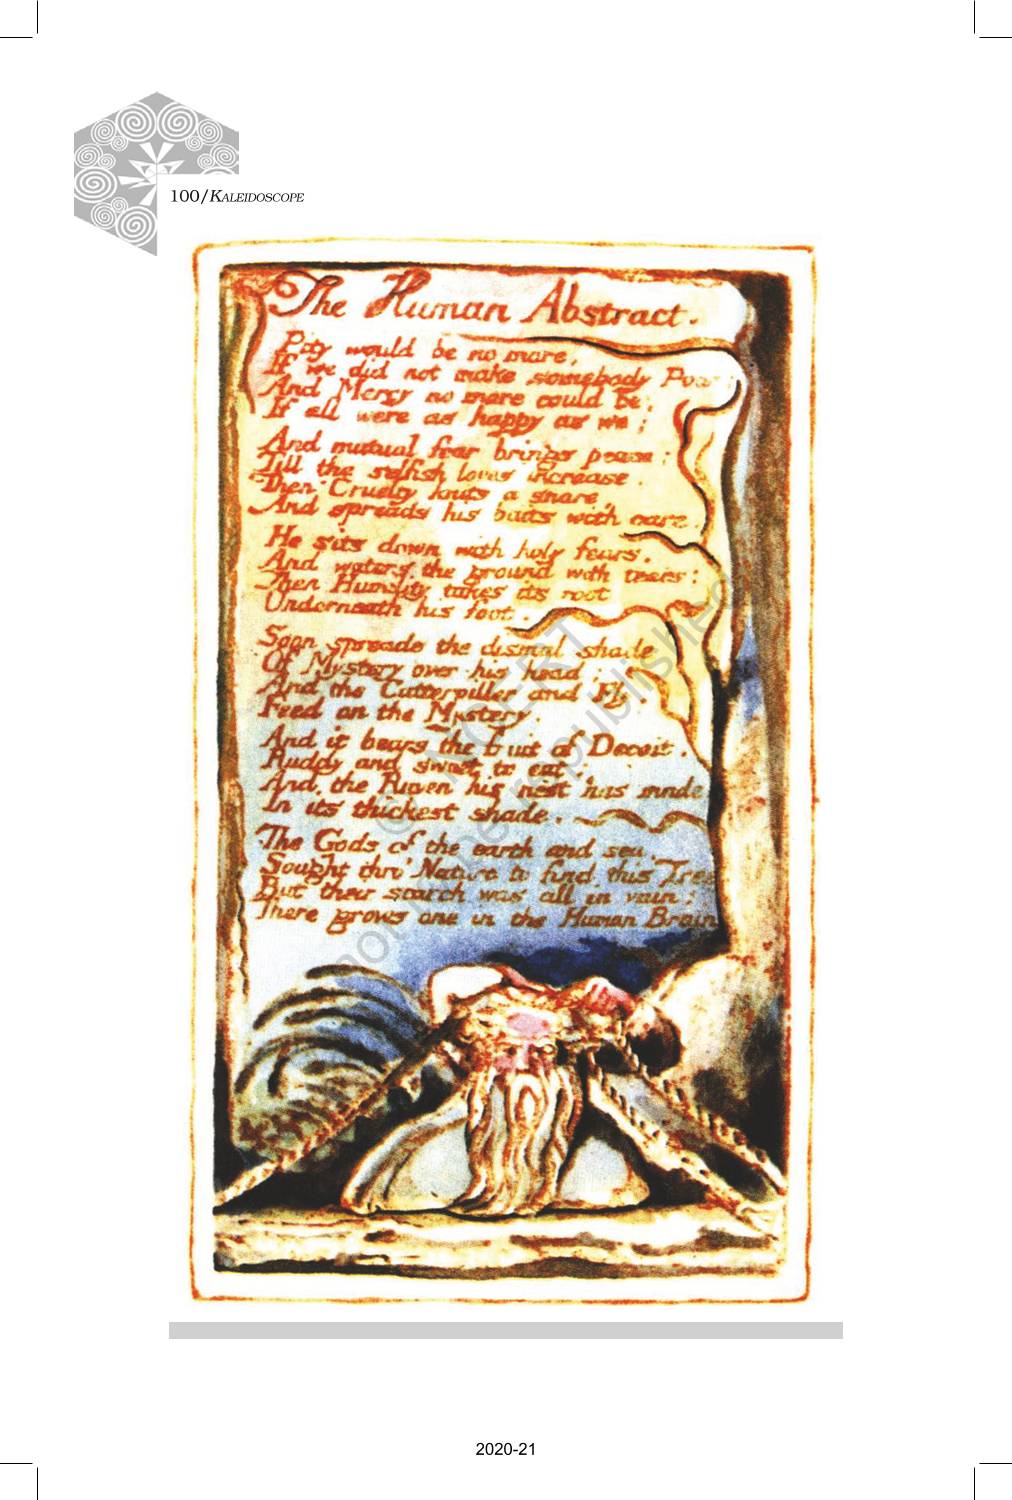 100/KALEIDOSCOPE
The Human Abstract.
Pity would be no more,
If we did not make somebody Poor:
And Mercy no more could be,
If all were as happy as we;
And mutual fear brings peace;
Till the selfish loves increase.
Then Cruelty knits a snare,
And spreads his baits with care.
He sits down with holy fears,
And waters the ground with tears:
Then Humility takes its root
Underneath his foot.
Soon spreads the dismal shade
Of Mystery over his head;
And the Catterpiller and Fly,
Feed on the Mystery.
And it bears the fruit of Deceit,
Ruddy and sweet to eat;
And the Raven his nest has made
In its thickest shade.
The Gods of the earth and sea,
Sought thro' Nature to find this Tree
But their search was all in vain;
There grows one in the Human Brain
© NCERT
not to be republished
2020-21